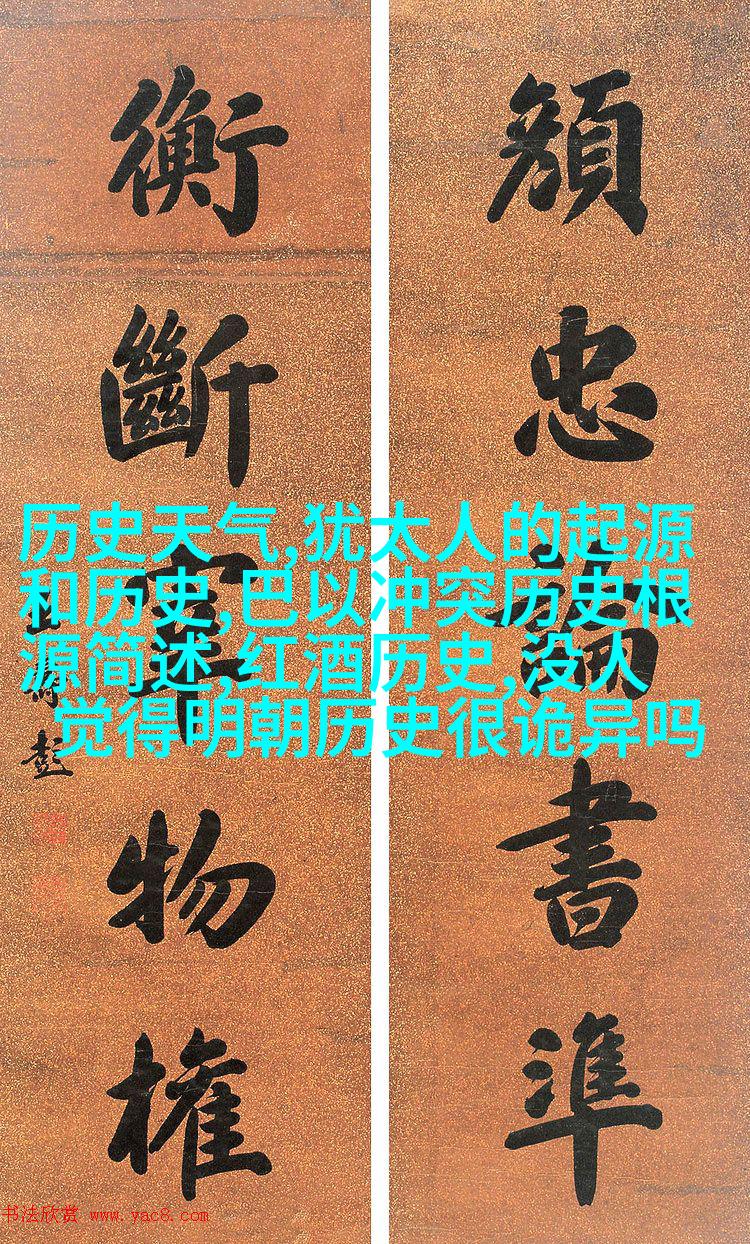 忠論書準
衡斷物權
彭
历史天气,犹太人的起源
和历史,巴以冲突历史根
源简述,红酒历史,没人
觉得明朝历史很诡异吗
书法欣赏 www.yac8.com